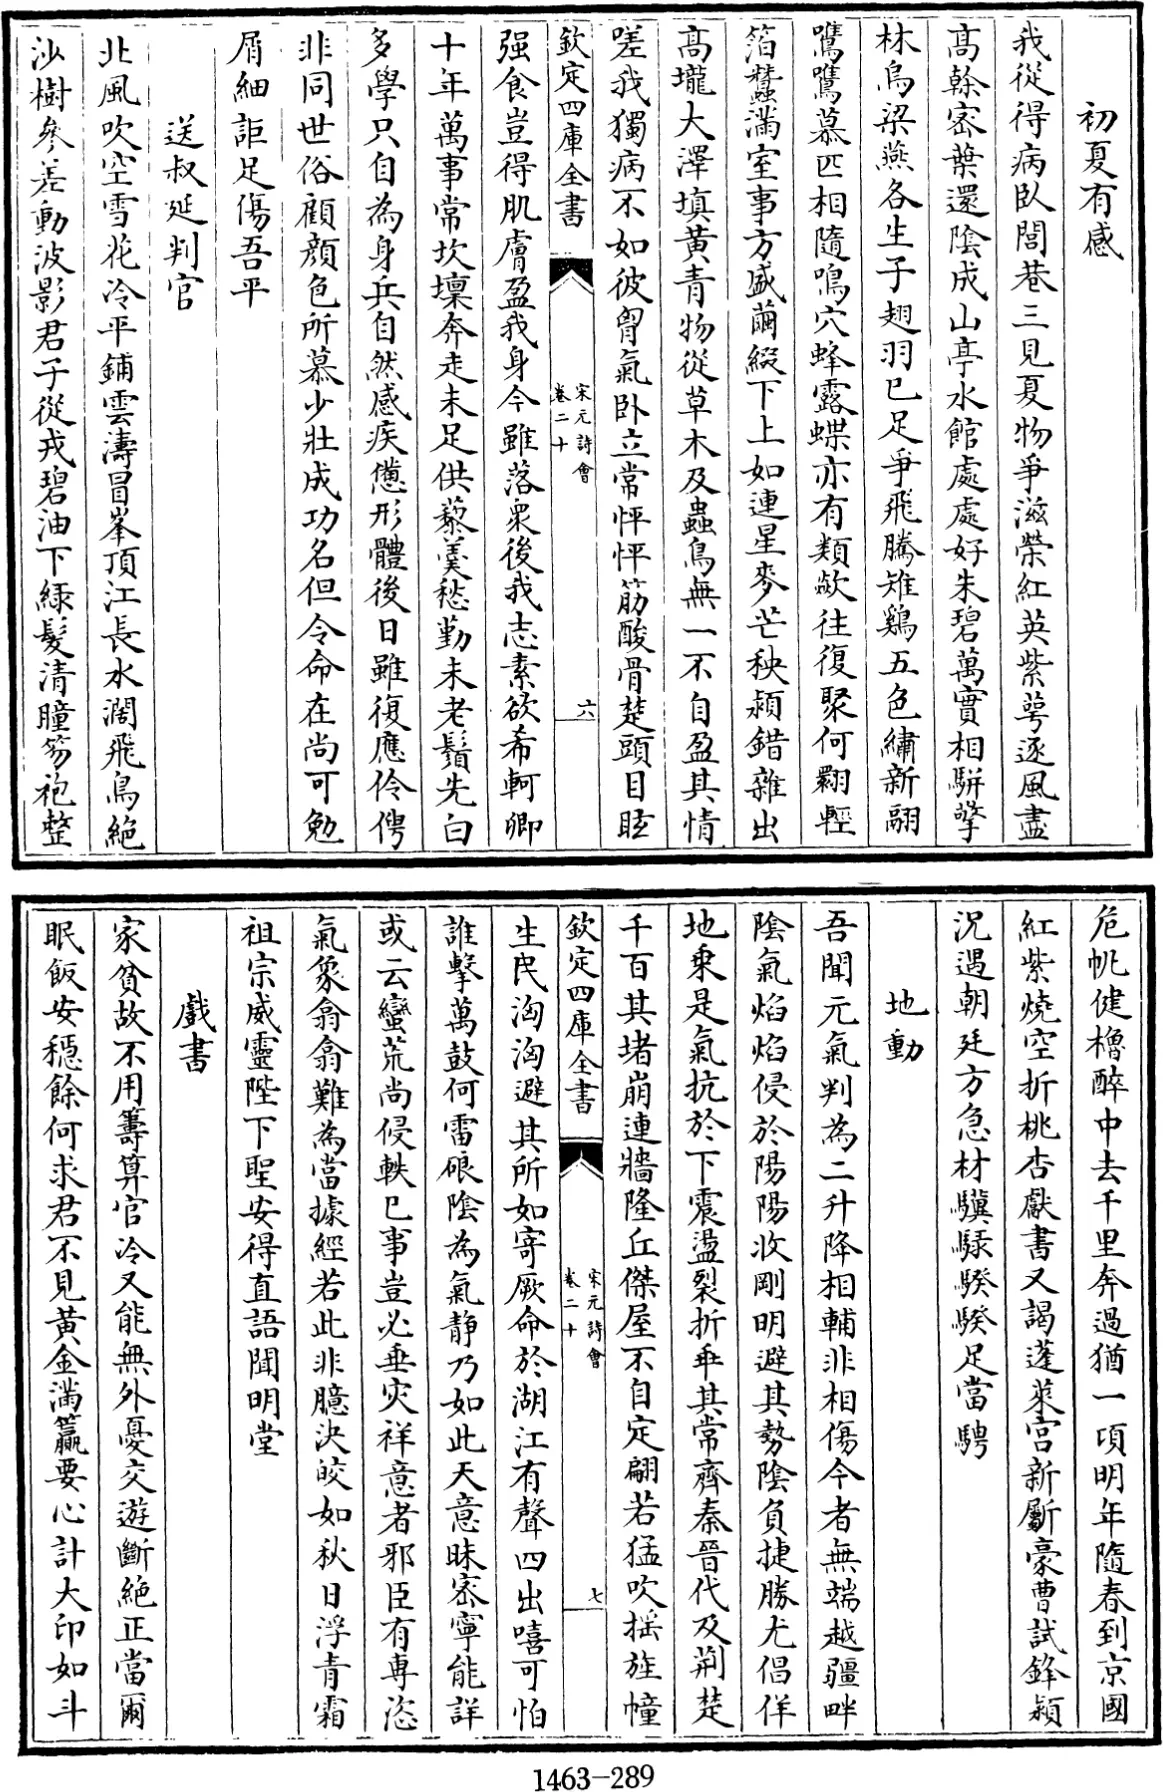 初夏有感
我從得病臥閭巷三見夏物爭滋榮紅英紫萼逐風盡
高榦宻葉還陰成山亭水館處處好朱碧萬實相駢擎
林烏梁燕各生子翅羽已足爭飛騰雉鷄五色繡新翮
嘴嘴慕匹相隨鳴穴蜂露蝶亦有類歘往復聚何翾輕
箔蠶滿室事方盛繭綴下上如連星麥芒秧穎錯雜出
高壠大澤填黄青物從草木及蟲鳥無一不自盈其情
嗟我獨病不如彼胷氣卧立常怦怦筋酸骨楚頭目眩
欽定四庫全書
宋元詩會
卷二十
六
强食豈得肌膚盈我身今雖落衆後我志素欲希軻卿
十年萬事常坎壈奔走未足供藜羮愁勤未老鬚先白
多學只自為身兵自然感疾憊形體後日雖復應伶俜
非同世俗顧顔色所慕少壯成功名但令命在尚可勉
屑細詎足傷吾平
送叔延判官
北風吹空雪花冷平鋪雲濤冒峯頂江長水濶飛鳥絶
沙樹參差動波影君子從戎碧油下緑髮清瞳笏袍整
危帆健櫓醉中去千里奔過猶一頃明年隨春到京國
紅紫燒空折桃杏獻書又謁蓬萊宫新斸豪曹試鋒穎
況遇朝廷方急材驥騄騤騤足當騁
地動
吾聞元氣判為二升降相輔非相傷今者無端越疆畔
陰氣焰焰侵於陽陽收剛明避其勢陰負捷勝尤倡佯
地乗是氣抗於下震盪裂折乖其常齊秦晉代及荆楚
千百其堵崩連牆隆丘傑屋不自定翩若猛吹摇旌幢
欽定四庫全書
宋元詩會
卷二十
七
生民洶洶避其所如寄厥命於湖江有聲四出嘻可怕
誰擊萬鼓何雷硠陰為氣靜乃如此天意昧宻寧能詳
或云蠻荒尚侵軼已事豈必垂灾祥意者邪臣有専恣
氣象翕翕難為當據經若此非臆決皎如秋日浮青霜
祖宗威靈陛下聖安得直語聞明堂
戲書
家貧故不用籌算官冷又能無外憂交遊斷絶正當爾
眠飯安穏餘何求君不見黄金滿籯要心計大印如斗
1463-289